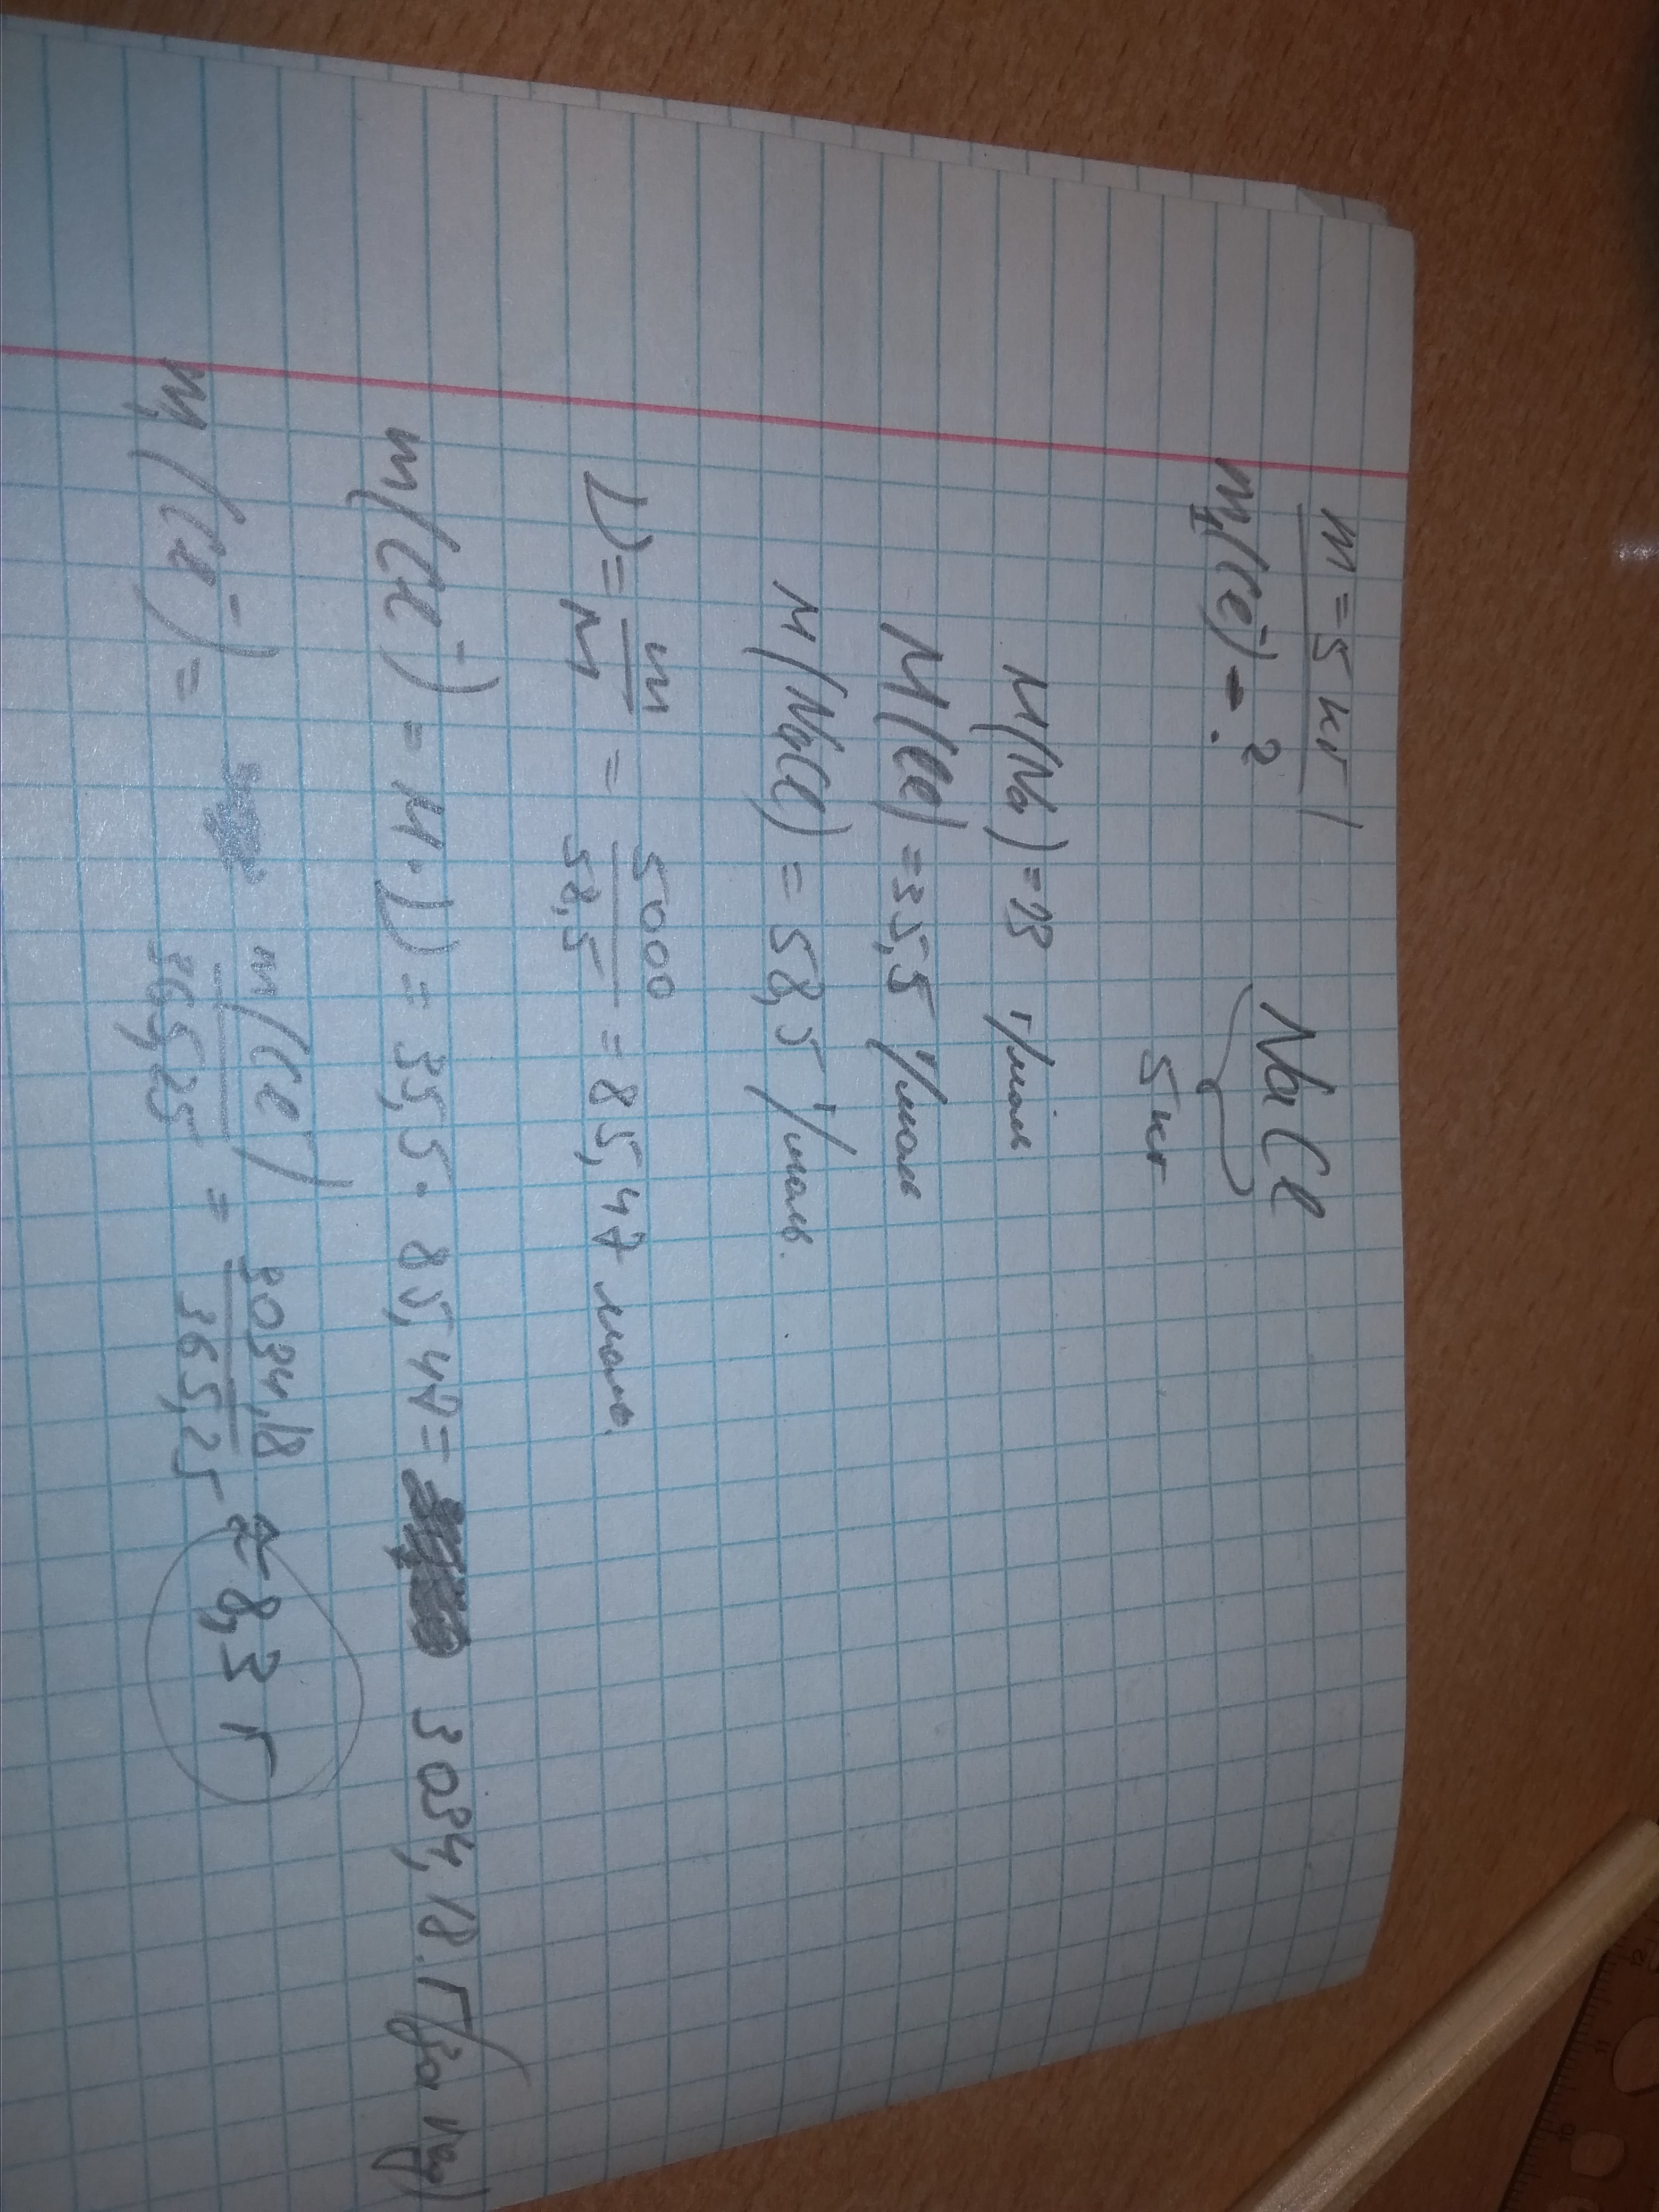 m = 5 кг
m₁(Cl⁻) - ?
NaCl
5 кг
M(Na) = 23 г/моль
M(Cl) = 35,5 г/моль
M(NaCl) = 58,5 г/моль.
ν = m/M = 5000/58,5 = 85,47 моль.
m(Cl⁻) = M · ν = 35,5 · 85,47 = 3034,18 г (за год)
m₁(Cl⁻) = m(Cl⁻)/365,25 = 3034,18/365,25 ≈ 8,3 г